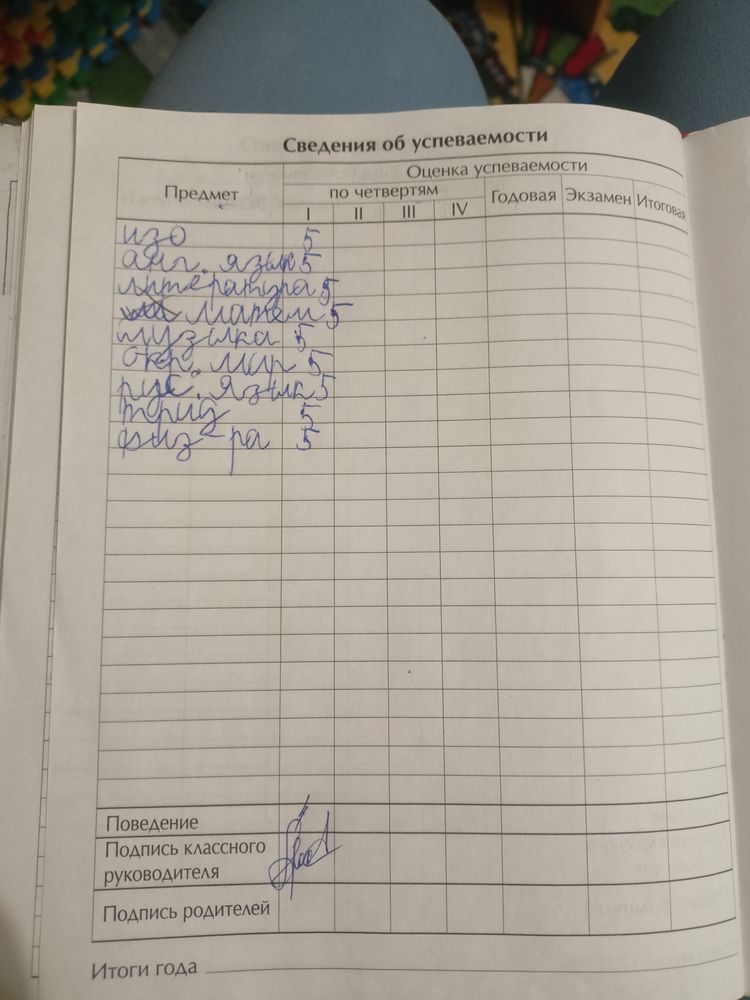 Сведения об успеваемости
Предмет
Оценка успеваемости
по четвертям
Годовая Экзамен Итоговая
I II III IV
изо 5
анг. язык 5
литература 5
матем 5
музыка 5
окр. мир 5
рус. язык 5
труд 5
физ-ра 5
Поведение
Подпись классного
руководителя
Подпись родителей
Итоги года